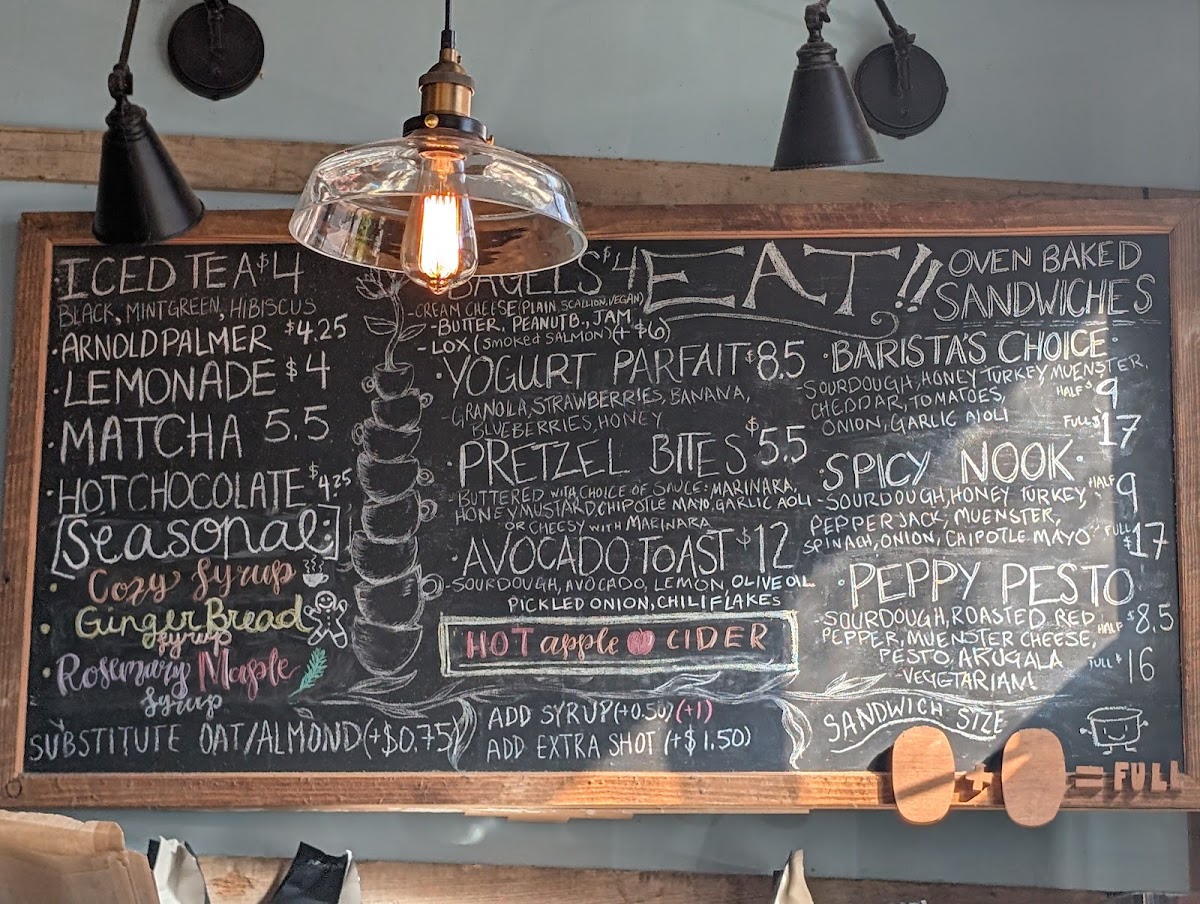 ICED TEA $4
BLACK, MINT GREEN, HIBISCUS
· ARNOLD PALMER $4.25
· LEMONADE $4
· MATCHA 5.5
· HOT CHOCOLATE $4.25
[Seasonal:]
· Cozy Syrup
· GingerBread
Syrup
· Rosemary Maple
Syrup
SUBSTITUTE OAT/ALMOND (+$0.75)
BAGELS $4
-CREAM CHEESE (PLAIN, SCALLION, VEGAN)
-BUTTER, PEANUT B., JAM
-LOX (SMOKED SALMON) (+$6)
· YOGURT PARFAIT $8.5
-GRANOLA, STRAWBERRIES, BANANA,
BLUEBERRIES, HONEY
· PRETZEL BITES $5.5
BUTTERED WITH CHOICE OF SAUCE: MARINARA,
HONEY MUSTARD, CHIPOTLE MAYO, GARLIC AOLI
OR CHEESY WITH MARINARA
· AVOCADO TOAST $12
-SOURDOUGH, AVOCADO, LEMON OLIVE OIL
PICKLED ONION, CHILI FLAKES
HOT apple CIDER
ADD SYRUP (+0.50) (+1)
ADD EXTRA SHOT (+$1.50)
EAT!!
OVEN BAKED
SANDWICHES
· BARISTA'S CHOICE ·
-SOURDOUGH, HONEY TURKEY, MUENSTER,
CHEDDAR, TOMATOES,
ONION, GARLIC AIOLI
HALF $9
FULL $17
· SPICY NOOK ·
-SOURDOUGH, HONEY TURKEY,
PEPPER JACK, MUENSTER,
SPINACH, ONION, CHIPOTLE MAYO
HALF 9
FULL $17
· PEPPY PESTO
-SOURDOUGH, ROASTED RED
PEPPER, MUENSTER CHEESE,
PESTO, ARUGALA
-VEGETARIAN!
HALF $8.5
FULL $16
SANDWICH SIZE
+ = FULL